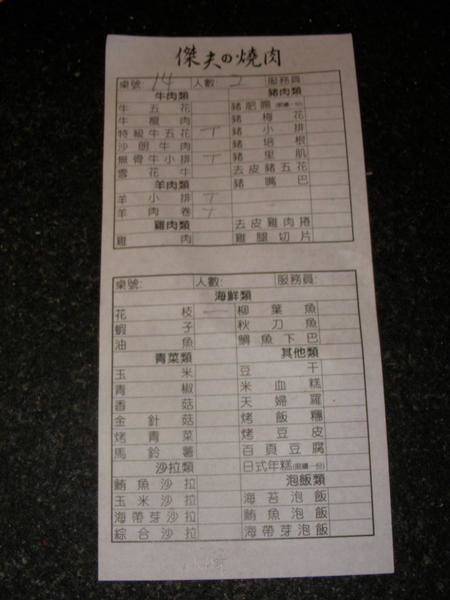 傑夫の燒肉
桌號: 14 人數: 2 服務員:
牛肉類 豬肉類
牛五花 豬肥腸(限續一份)
牛腹肉 豬梅花
特級牛五花 丁 豬小排
沙朗牛肉 豬培根
無骨牛小排 丁 豬里肌
雪花牛 去皮豬五花
羊肉類 豬嘴巴
羊小排 丁
羊肉卷 丁
雞肉類 去皮雞肉捲
雞肉 雞腿切片
桌號: 人數: 服務員:
海鮮類
花枝 一 柳葉魚
蝦子 秋刀魚
油魚 鯛魚下巴
青菜類 其他類
玉米 豆干
青椒 米血糕
香菇 天婦羅
金針菇 烤飯糰
烤青菜 烤豆皮
馬鈴薯 百頁豆腐
沙拉類 日式年糕(限續一份)
鮪魚沙拉 泡飯類
玉米沙拉 海苔泡飯
海帶芽沙拉 鮪魚泡飯
綜合沙拉 海帶芽泡飯